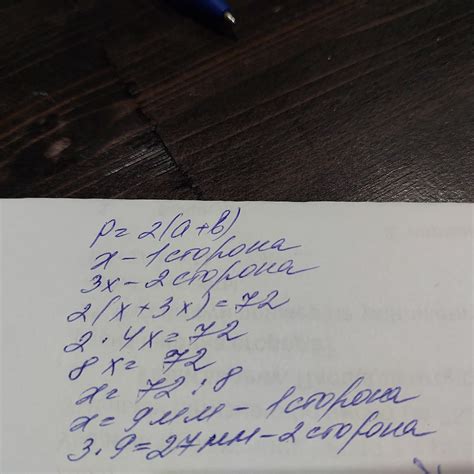 P = 2(a+b)
x - 1 сторона
3x - 2 сторона
2(x+3x) = 72
2 · 4x = 72
8x = 72
x = 72 : 8
x = 9 мм - 1 сторона
3 · 9 = 27 мм - 2 сторона